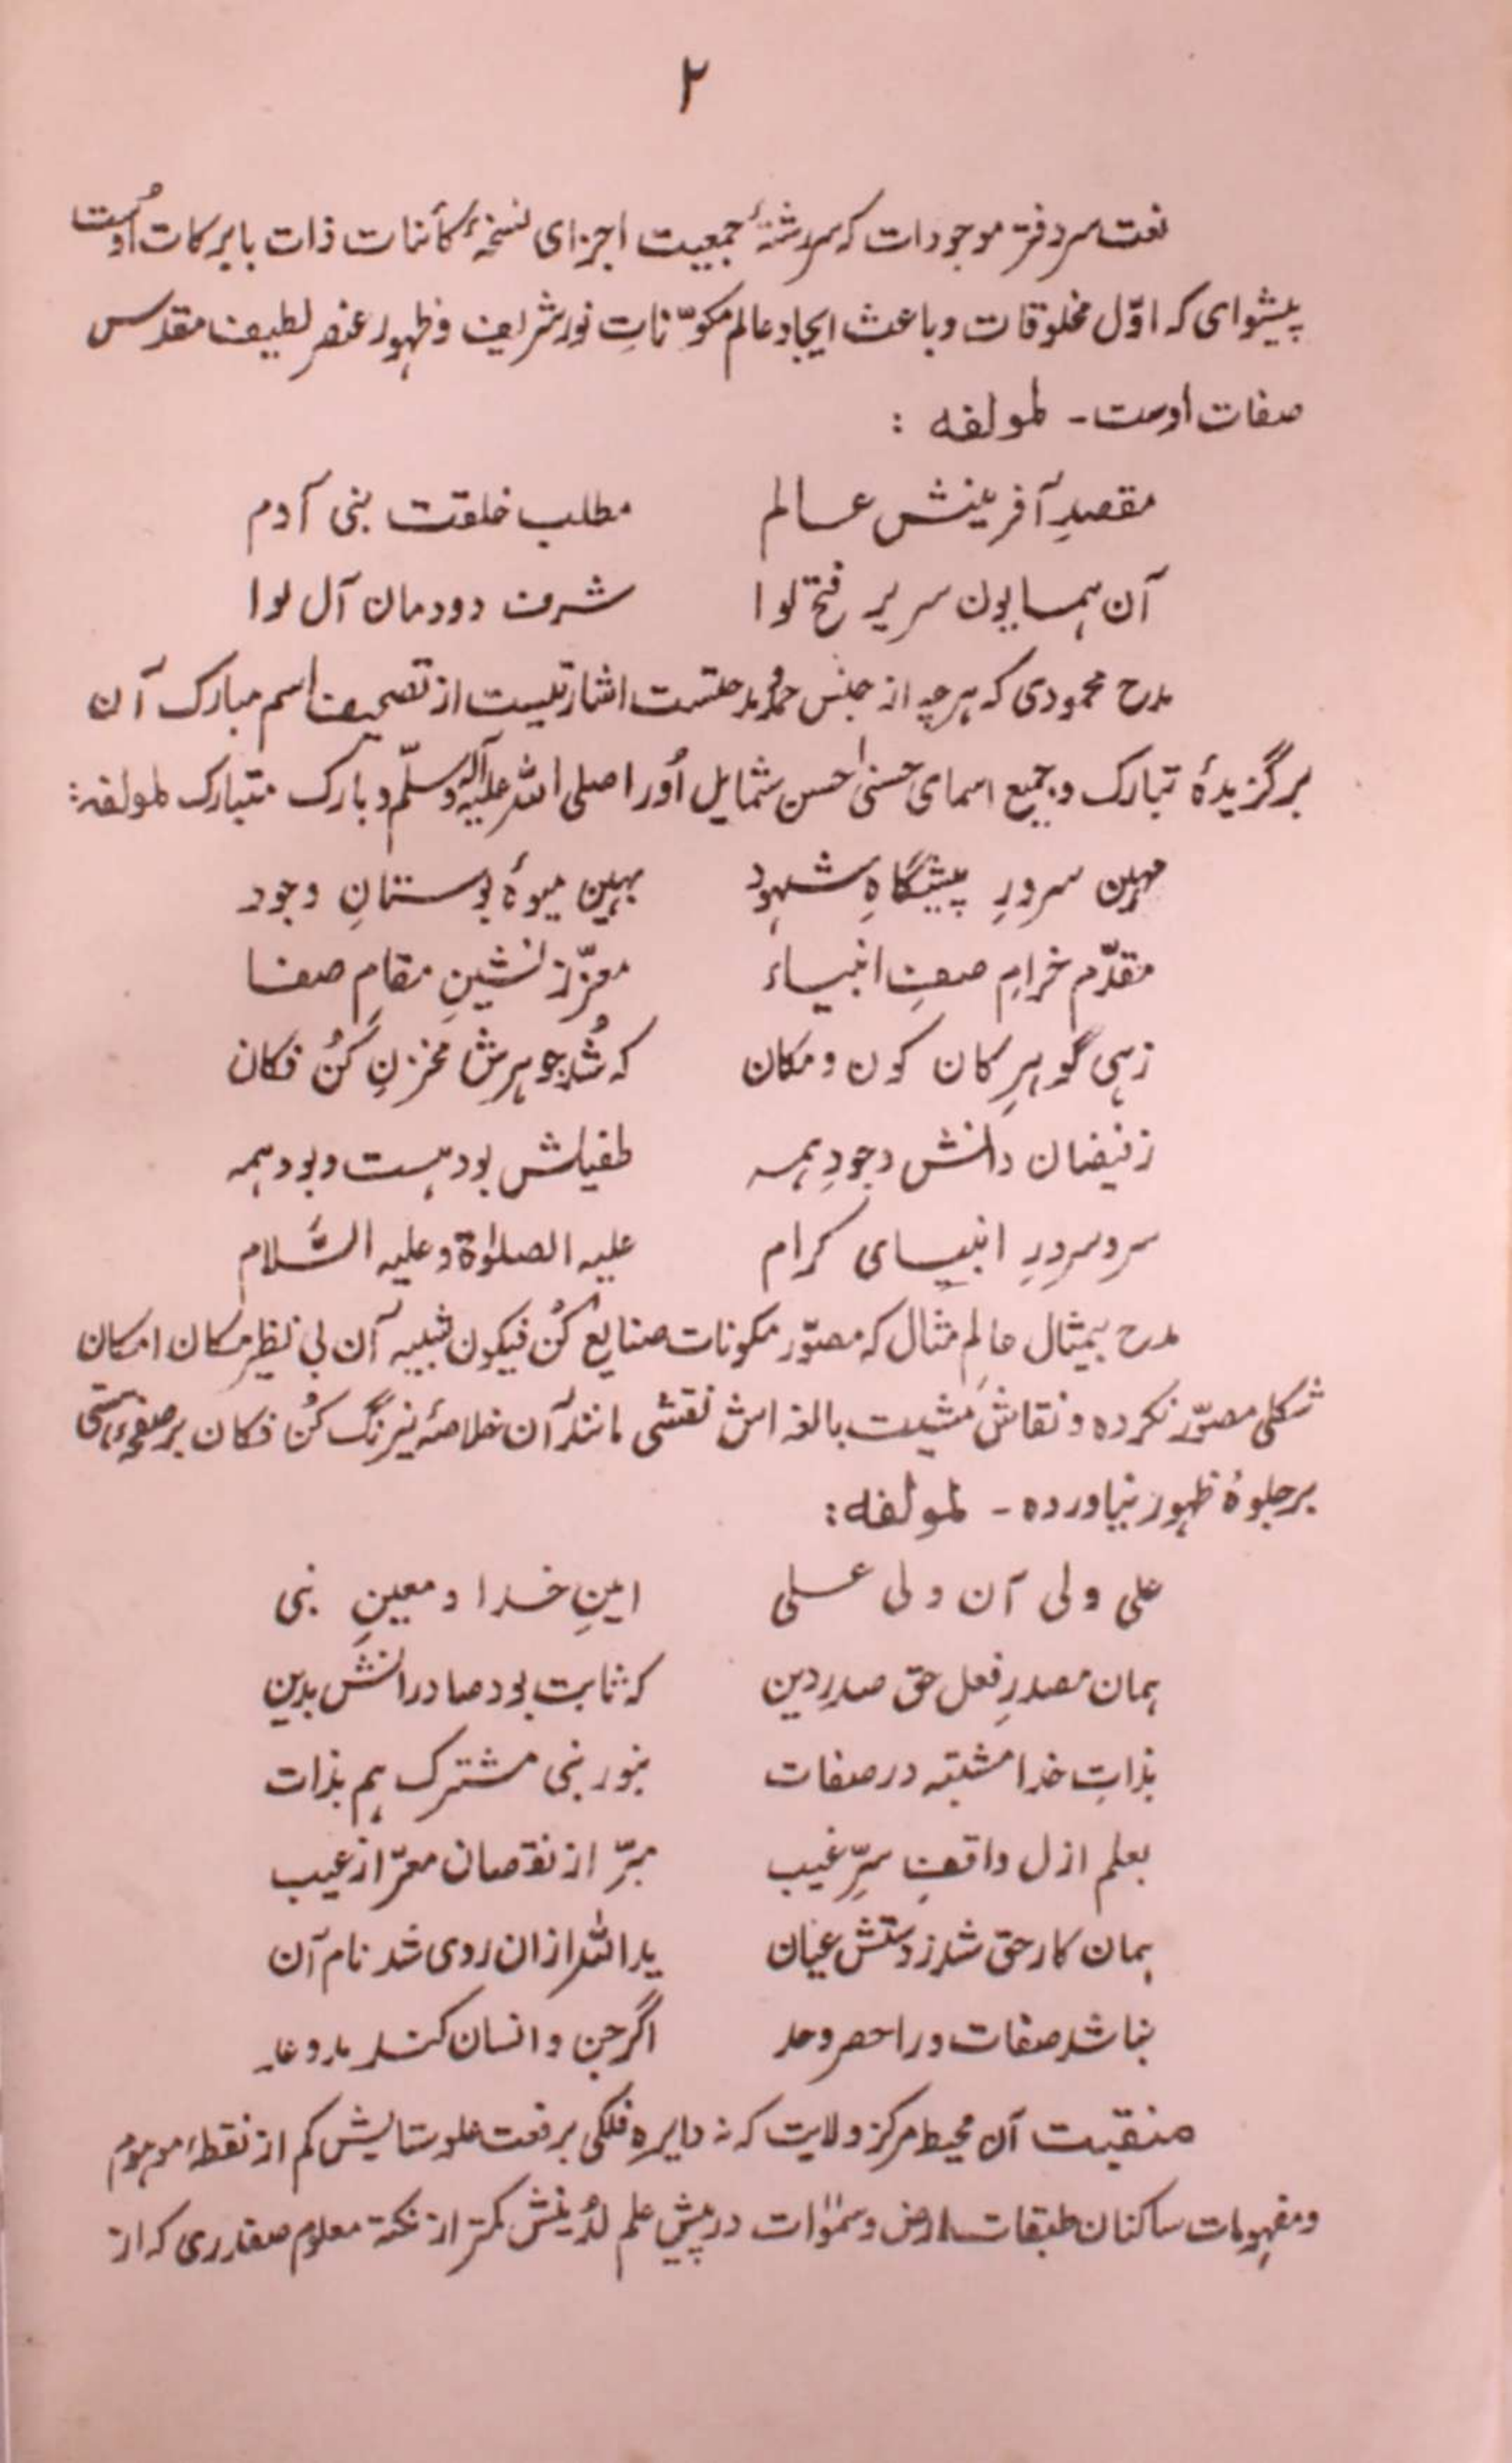 ۲
نعت سردفتر موجودات که سررشتهٔ جمعیت اجزای نسخهٔ کائنات ذات بابرکات اوست
پیشوای که اوّل مخلوقات و باعث ایجاد عالم مکوّناتِ نور شریف و ظهور عنصر لطیف مقدس
صفات اوست - لمولفه :
مقصدِ آفرینش عالم مطلب خلقت بنی آدم
آن همایون سریر فتح لوا شرف دودمان آل لوا
مدح محمودی که هرچه از جنس حمد و مدحتست اشارتیست از تصحیف اسم مبارک آن
برگزیدهٔ تبارک و جمیع اسمای حسنیٰ احسن شمایل اُورا صلی الله علیه وآله وسلّم و بارک متبارک لمولفه:
مهین سرورِ پیشگاهِ شهود بهین میوهٔ بوستانِ وجود
مقدّم خرامِ صفِ انبیاء معزّز نشینِ مقامِ صفا
زهی گوهرِ کان کون و مکان که شُد جوهرش مخزنِ کُن فکان
زفیضان دانش وجودِ همه طفیلش بود هست و بود همه
سر و سرورِ انبیای کرام علیه الصلوٰة و علیه السّلام
مدح بیمثال عالمِ مثال که مصوّر مکونات صنایع کُن فیکون شبیه آن بی نظیر مکان امکان
شکلی مصوّر نکرده و نقاش مشیت بالغه اش نقشی مانند آن خلاصهٔ نیرنگ کُن فکان بر صفحهٔ هستی
بر جلوهٔ ظهور نیاورده - لمولفه:
علی ولی آن ولی علی امینِ خدا و معینِ نبی
همان مصدرِ فعل حق صدرِ دین که ثابت بود صادر انش بدین
بذاتِ خدا مشتبه در صفات بنور نبی مشترک هم بذات
بعلم ازل واقفِ سرِّ غیب مبرّ از نقصان معرّ از عیب
همان کار حق شد ز دستش عیان ید الله ازان روی شد نام آن
نباشد صفات ورا حصر و حد اگر جن و انسان کند مد و عد
منقبت آن محیط مرکز ولایت که نه دایره فلکی برفعت علو ستایش کم از نقطهٔ موهوم
و مفهومات ساکنان طبقات ارض و سمٰوات در پیش علم لدُنیش کمتر از نکتهٔ معلوم صفدری که از